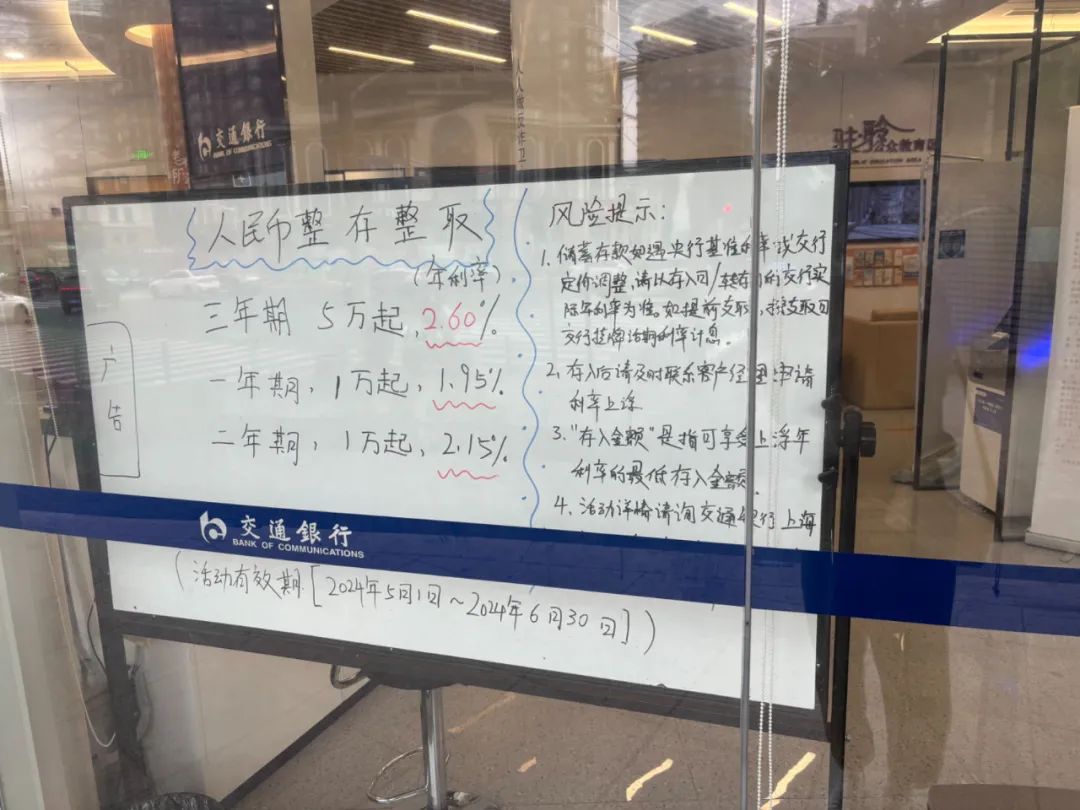 交通銀行
BANK OF COMMUNICATIONS
人民币整存整取
(年利率)
三年期 5万起, 2.60%
一年期, 1万起, 1.95%
二年期, 1万起, 2.15%
广告
风险提示:
1. 储蓄存款如遇央行基准利率或交行
定价调整,请以存入日/转存日的交行实
际年利率为准。如提前支取,按支取日
交行挂牌活期利率计息。
2. 存入后请及时联系客户经理申请
利率上浮
3. "存入金额"是指可享受上浮年
利率的最低存入金额.
4. 活动详情请询交通银行上海
交通銀行
BANK OF COMMUNICATIONS
(活动有效期[2024年5月1日~2024年6月30日])